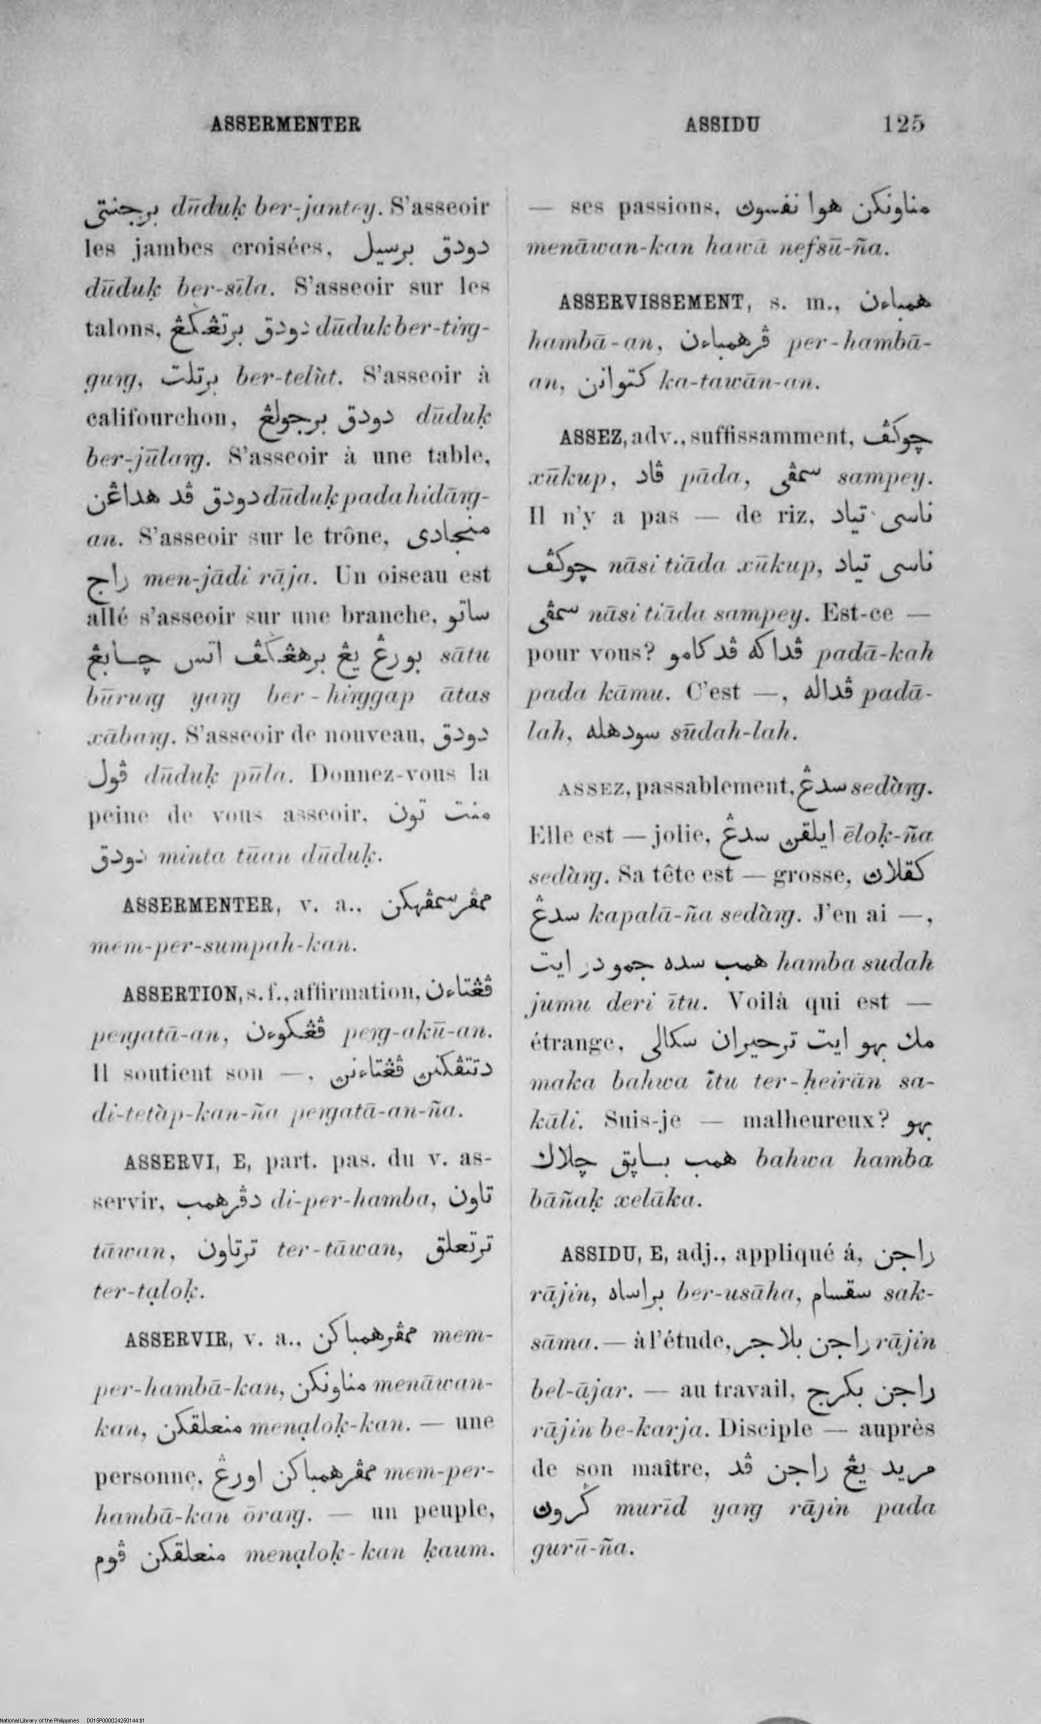 ASSERMENTER
ASSIDU 125
برجنتي dūduḳ ber-jantey. S'asseoir
les jambes croisées, دودق برسيل
dūduḳ ber-sīla. S'asseoir sur les
talons, دودق برتڠݢڠ dūduk ber-tiṅg-
guṅg, برتلت ber-telùt. S'asseoir à
califourchon, دودق برجولڠ dūduḳ
ber-jūlaṅg. S'asseoir à une table,
دودق ڤد هداڠن dūduḳ pada hidāṅg-
an. S'asseoir sur le trône, منجادى
راج men-jādi rāja. Un oiseau est
allé s'asseoir sur une branche, ساتو
بورڠ يڠ برهڠݢڤ اتس چابڠ sātu
būruṅg yaṅg ber-hiṅggap ātas
xābaṅg. S'asseoir de nouveau, دودق
ڤول dūduḳ pūla. Donnez-vous la
peine de vous asseoir, منت تون
دودق minta tūan dūduḳ.
ASSERMENTER, v. a., ممڤرسمڤهكن
mem-per-sumpah-kan.
ASSERTION, s. f., affirmation, ڤڠتاءن
peṅgatā-an, ڤڠكوءن peṅg-akū-an.
Il soutient son —, دتتڤكنن ڤڠتاءنن
di-tetàp-kan-ña peṅgatā-an-ña.
ASSERVI, E, part. pas. du v. as-
servir, دڤرهمب di-per-hamba, تاون
tāwan, ترتاون ter-tāwan, ترتعلق
ter-tạloḳ.
ASSERVIR, v. a., ممڤرهمباكن mem-
per-hambā-kan, مناونكن menāwan-
kan, منعلقكن menạloḳ-kan. — une
personne, ممڤرهمباكن اورڠ mem-per-
hambā-kan ōraṅg. — un peuple,
منعلقكن ڤوم menạloḳ-kan ḳaum.
— ses passions, مناونكن هوا نفسوڽ
menāwan-kan hawā nefsū-ña.
ASSERVISSEMENT, s. m., همباءن
hambā-an, ڤرهمباءن per-hambā-
an, كتوانن ka-tawān-an.
ASSEZ, adv., suffissamment, چوكڤ
xūkup, ڤاد pāda, سمڤى sampey.
Il n'y a pas — de riz, ناسى تياد
چوكڤ nāsi tiāda xūkup, ناسى تياد
سمڤى nāsi tiāda sampey. Est-ce —
pour vous? ڤداكه ڤد كامو padā-kah
pada kāmu. C'est —, ڤداله padā-
lah, سودهله sūdah-lah.
ASSEZ, passablement, سدڠ sedàṅg.
Elle est — jolie, ايلقن سدڠ ēloḳ-ña
sedàṅg. Sa tête est — grosse, كڤلاڽ
سدڠ kapalā-ña sedàṅg. J'en ai —,
همب سده جمو در ايت hamba sudah
jumu deri ītu. Voilà qui est —
étrange, مك بهو ايت ترحيران سكالى
maka bahwa ītu ter-ḥeirān sa-
kāli. Suis-je — malheureux? بهو
همب بسايق چلاك bahwa hamba
bāñaḳ xelāka.
ASSIDU, E, adj., appliqué á, راجن
rājin, براساه ber-usāha, سقسام sak-
sāma. — à l'étude, راجن بلاجر rājin
bel-ājar. — au travail, راجن بكرج
rājin be-karja. Disciple — auprès
de son maître, مريد يڠ راجن ڤد
ݢروڽ murīd yaṅg rājin pada
gurū-ña.
National Library of the Philippines